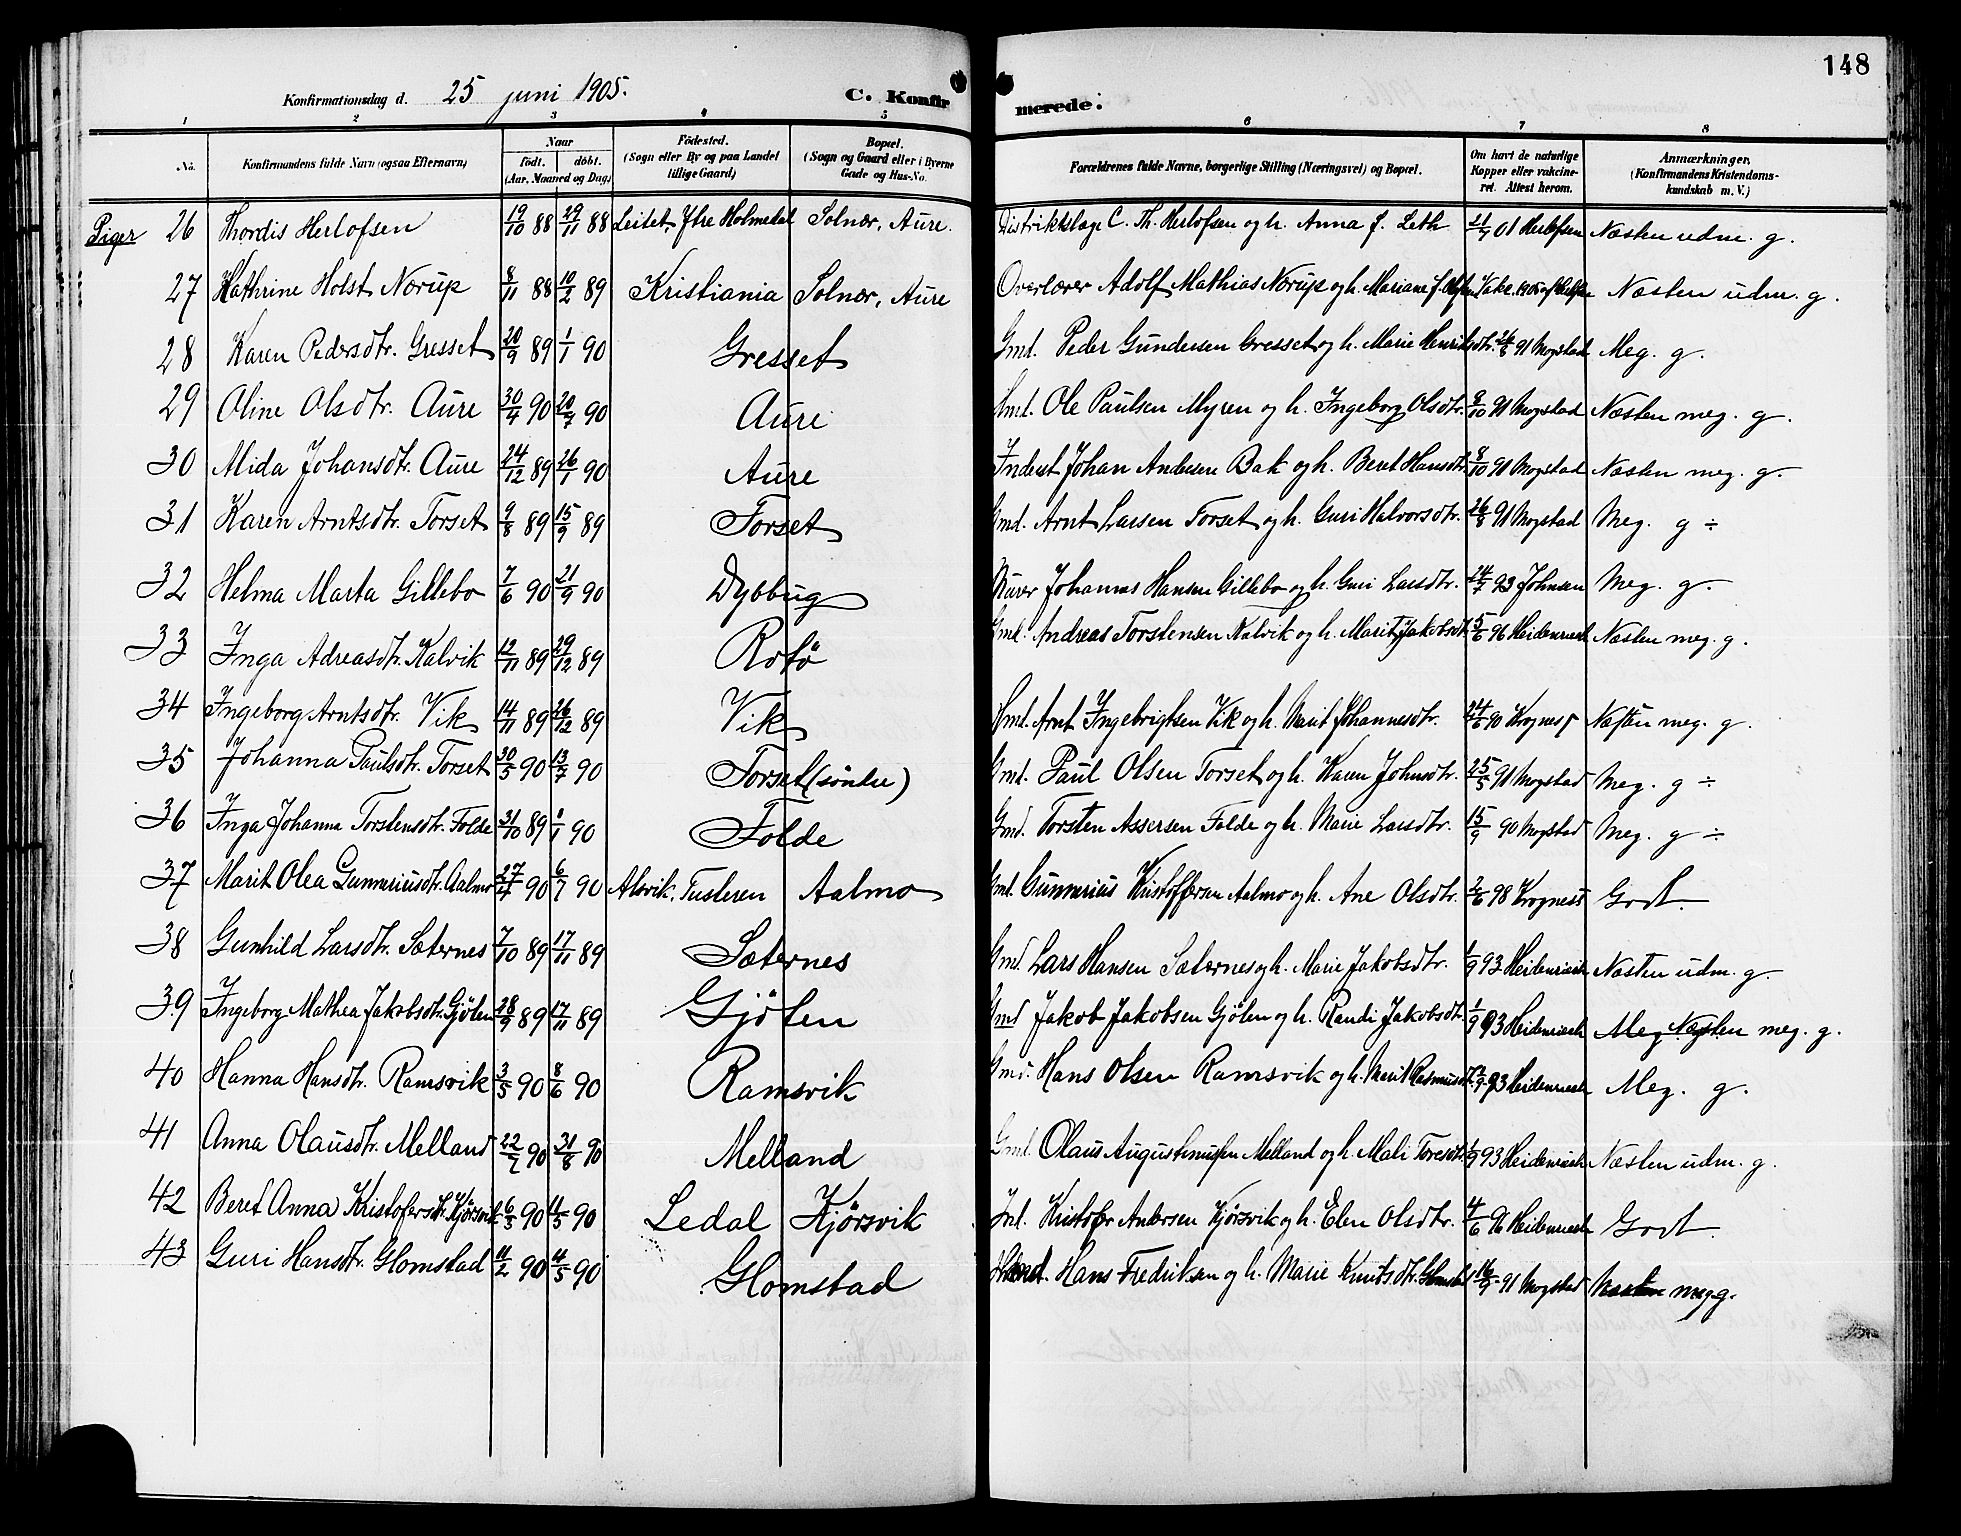 148
Konfirmationsdag d. 25 juni 1905.
C. Konfir merede:
1 2 3 4 5 6 7 8
No. Konfirmandens fulde Navn (ogsaa Efternavn) Naar født. døbt. (Aar, Maaned og Dag) Fødested. (Sogn eller By og paa Landet tillige Gaard) Bopæl. (Sogn og Gaard eller i Byerne Gade og Hus-No. Forældrenes fulde Navne, borgerlige Stilling (Næringsvei) og Bopæl. Om havt de naturlige Kopper eller vakcineret. Attest herom. Anmærkninger. (Konfirmandens Kristendomskundskab m. V.)
Piger 26 Thordis Herlofsen 19/10 88 29/11 88 Leitet, Ytre Holmedal Solnør, Aure. Distriktslæge C. Th. Herlofsen og h. Anna f. Leth 21/7 01 Herlofsen Næsten udm. g.
27 Kathrine Holst Norup 8/11 88 10/2 89 Kristiania Solnør, Aure Overlærer Adolf Mathias Norup og h. Mariane f. Næsten udm. g.
28 Karen Pedersdtr. Gresset 20/9 89 1/1 90 Gresset Gmd. Peder Gundersen Gresset og h. Marie Henriksdtr. 91 Mogstad Meg. g.
29 Oline Olsdtr. Aure 30/4 90 20/7 90 Aure Hmd. Ole Paulsen Myren og h. Ingeborg Olsdtr. 8/10 91 Mogstad Næsten meg. g.
30 Alida Johansdtr. Aure 24/12 89 26/1 90 Aure Inderst Johan Andersen Bak og h. Beret Hansdtr. 8/10 91 Mogstad Næsten meg. g.
31 Karen Arntsdtr. Torset 9/8 89 15/9 89 Torset Gmd. Arnt Larsen Torset og h. Guri Halvorsdtr. 26/8 91 Mogstad Meg. g ÷
32 Helma Marta Gillebo 7/6 90 21/9 90 Dybbug Murer Johannes Hansen Gillebo og h. Guri Larsdtr. 24/7 93 Johnsen Meg. g.
33 Inga Adreasdtr. Kalvik 12/11 89 29/12 89 Rotø Gmd. Andreas Torstensen Kalvik og h. Marit Jakobsdt. 5/6 96 Heidenreich Næsten meg. g.
34 Ingeborg Arntsdtr. Vik 14/11 89 26/12 89 Vik Hmd. Arnt Ingebrigtsen Vik og h. Marit Johannesdtr. 90 Krogness Næsten meg. g.
35 Johanna Paulsdtr. Torset 30/5 90 13/7 90 Torset (søndre) Gmd. Paul Olsen Torset og h. Karen Johnsdtr. 25/5 91 Mogstad Meg. g ÷
36 Inga Johanna Torstensdtr. Folde 31/10 89 1/1 90 Folde Gmd. Torsten Assersen Folde og h. Marie Larsdtr. 15/9 90 Mogstad Meg. g ÷
37 Marit Olea Gunnariusdtr. Aalmo 27/4 90 6/7 90 Alsvik, Tusteren Aalmo Gmd. Gunnarius Kristoffersen Aalmo og h. Ane Olsdtr. 2/6 98 Krogness Godt.
38 Gunhild Larsdtr. Sæternes 7/10 89 17/11 89 Sæternes Gmd. Lars Hansen Sæternes og h. Marie Jakobsdtr. 1/9 93 Heidenreich Næsten udm. g.
39 Ingeborg Mathea Jakobsdtr. Gjølen 28/9 89 17/11 89 Gjølen Gmd. Jakob Jakobsen Gjølen og h. Randi Jakobsdt. 1/9 93 Heidenreich Meg Næsten meg. g.
40 Hanna Hansdtr. Ramsvik 3/5 90 8/6 90 Ramsvik Gmd. Hans Olsen Ramsvik og h. Marit Rasmusdt. 93 Heidenreich Meg. g.
41 Anna Olausdtr. Melland 22/7 90 31/8 90 Melland Gmd. Olaus Augustinussen Melland og h. Mali Toresdtr. 1/9 93 Heidenreich Næsten udm. g.
42 Beret Anna Kristofersdtr. Kjørsvik 6/3 90 11/5 90 Ledal Kjørsvik Ind. Kristofer Andersen Kjørsvik og h. Elen Olsdtr. 4/6 96 Heidenreich Godt.
43 Guri Hansdtr. Glomstad 11/2 90 4/5 90 Glomstad Hans Fredriksen og h. Marie Knutsdtr. Glomstad 16/9 91 Mogstad Næsten meg g.